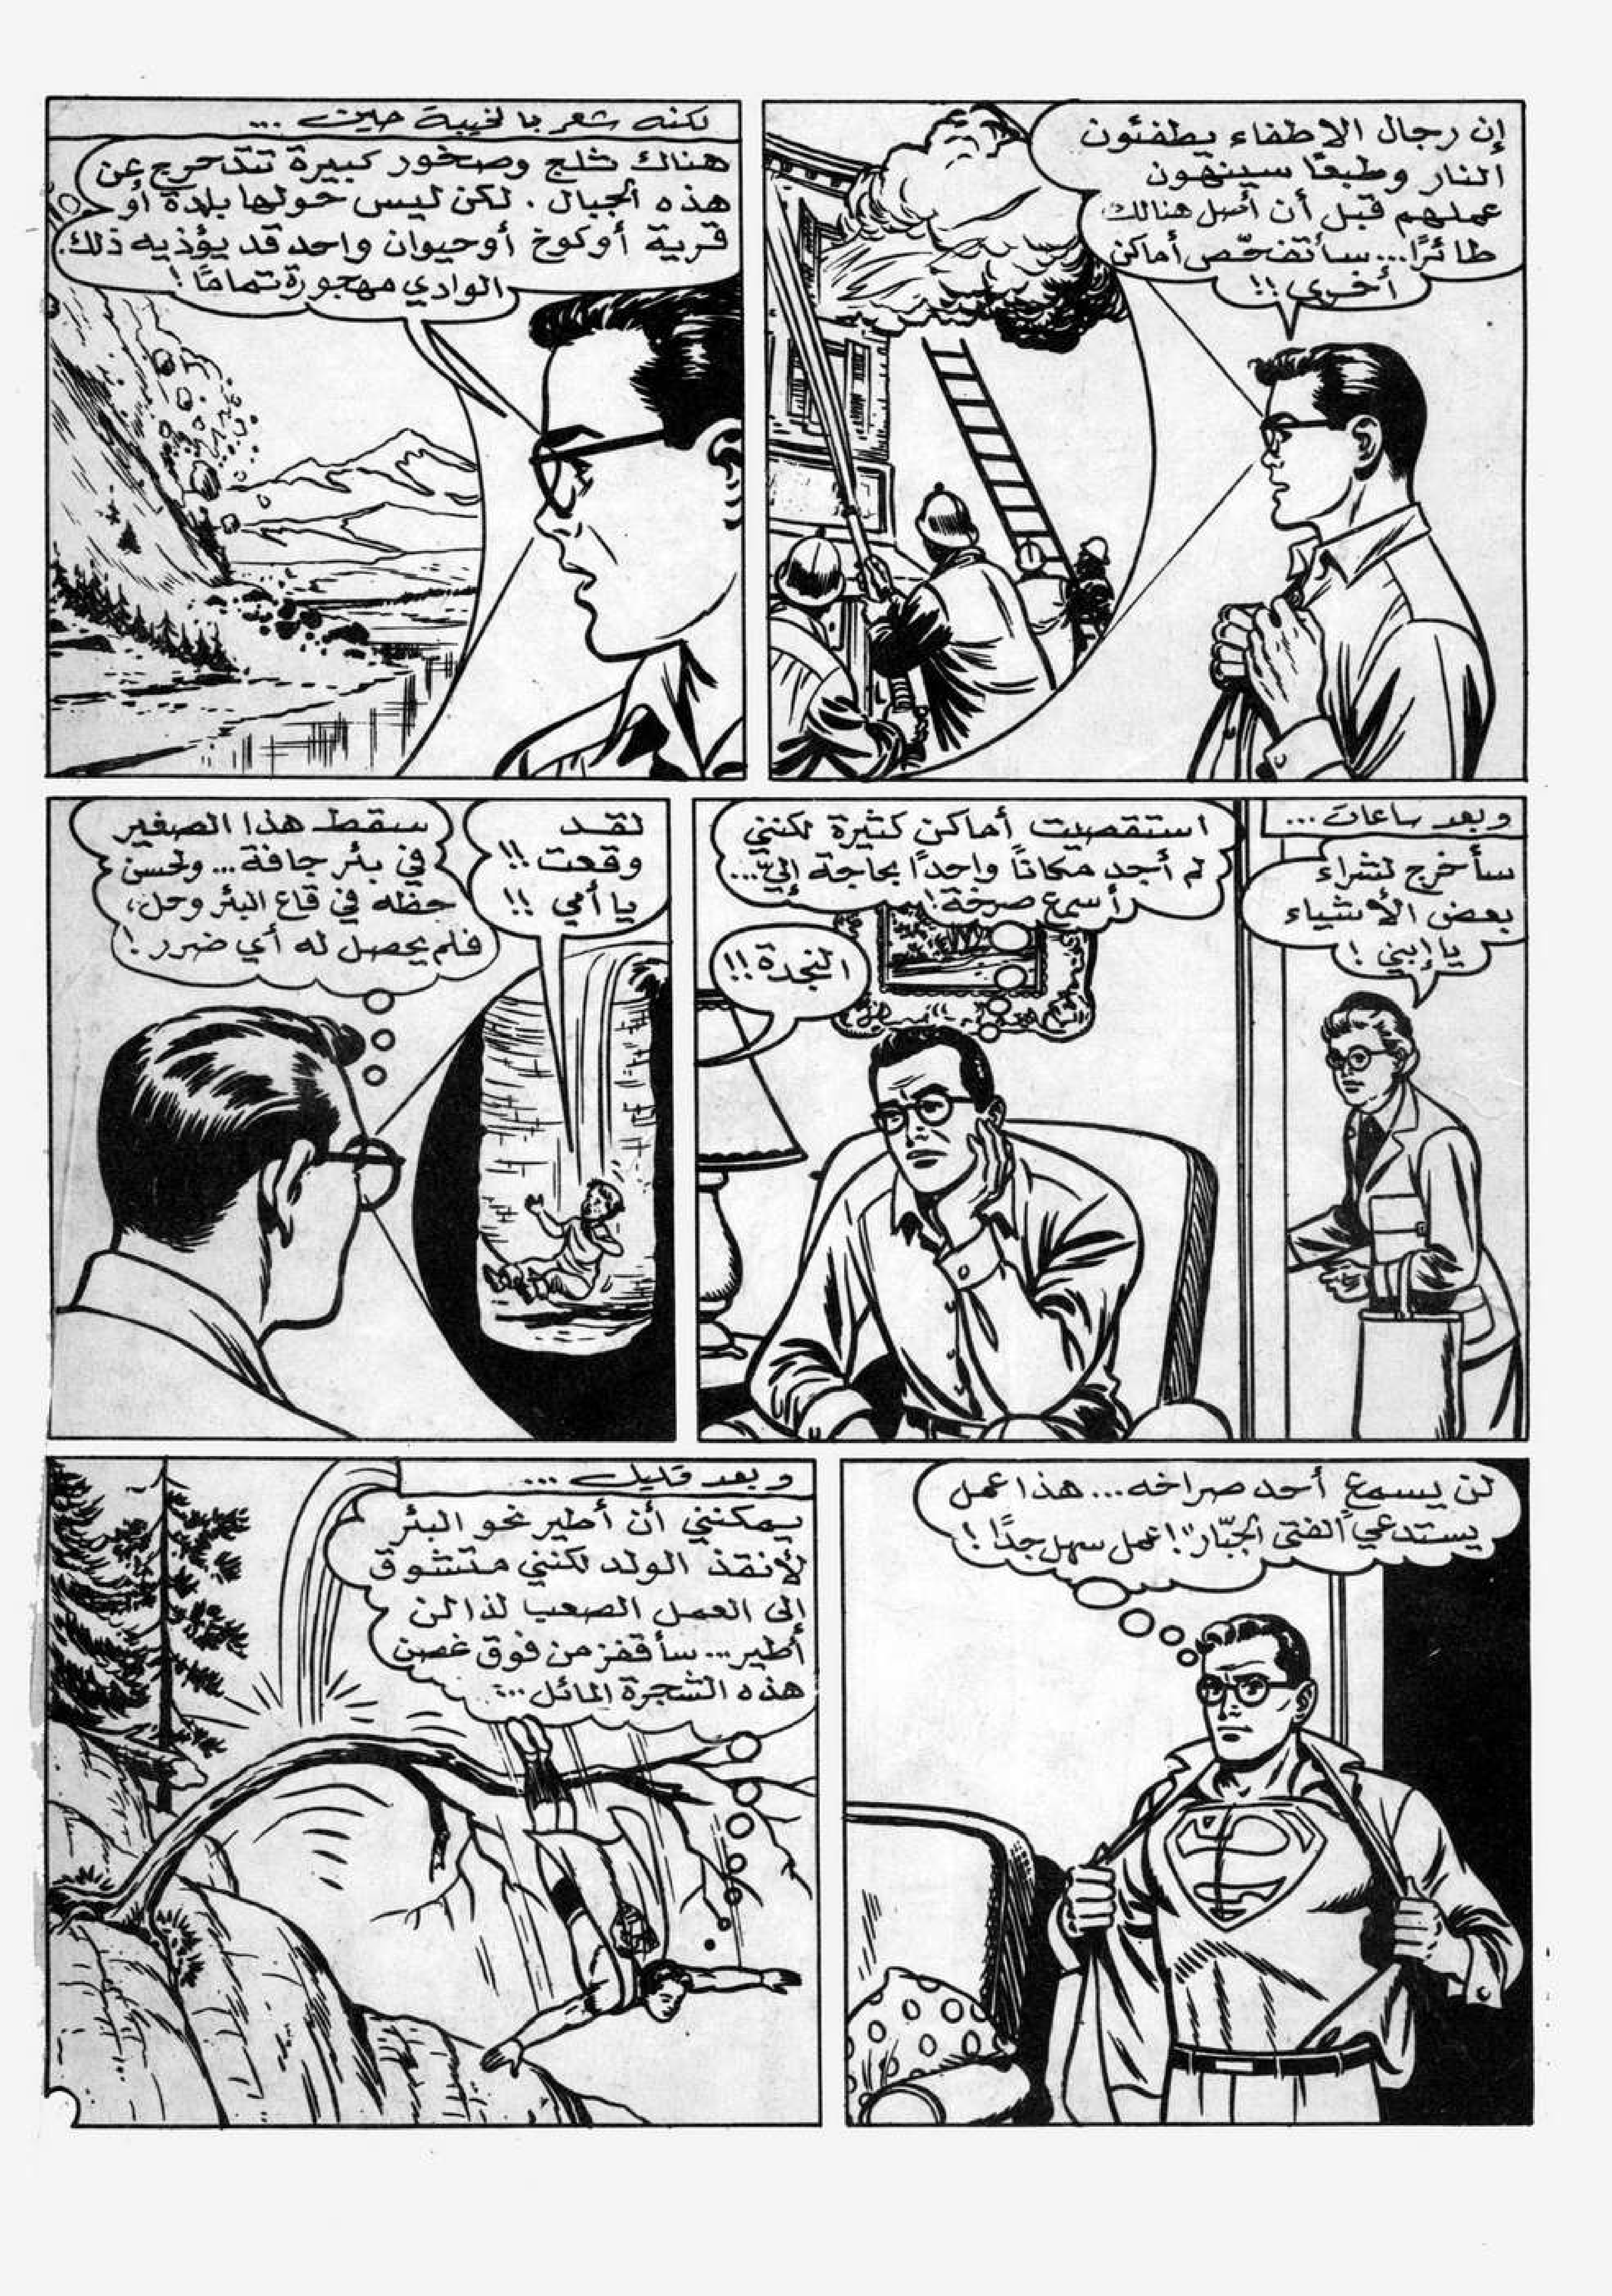 إن رجال الاطفاء يطفئون
النار وطبعًا سينهون
عملهم قبل أن أصل هنالك
طائرًا... سأتفحّص أماكن
أخرى !!
لكنه شعر بالخيبة حين ...
هناك ثلج وصخور كبيرة تتدحرج عن
هذه الجبال . لكن ليس حولها بلدة أو
قرية أو كوخ أو حيوان واحد قد يؤذيه ذلك.
الوادي مهجورة تمامًا !
وبعد ساعات ...
سأخرج لشراء
بعض الأشياء
يا إبني !
استقصيت أماكن كثيرة لكنني
لم أجد مكانًا واحدًا بحاجة إليّ...
أسمع صرخة !
النجدة !!
لقد
وقعت !!
يا أمي !!
سقط هذا الصغير
في بئر جافة ... ولحسن
حظه في قاع البئر وحل،
فلم يحصل له أي ضرر !
لن يسمع أحد صراخه... هذا عمل
يستدعي "الفتى الجبّار" ! عمل سهل جدًا !
وبعد قليل ...
يمكنني أن أطير نحو البئر
لأنقذ الولد لكنني متشوق
إلى العمل الصعب لذا لن
أطير... سأقفز من فوق غصن
هذه الشجرة المائل ...